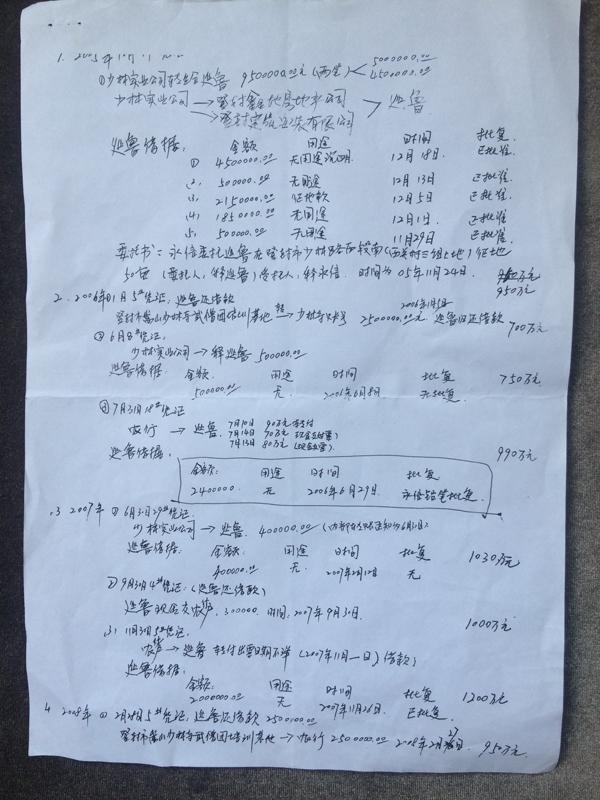 1. 2005年
① 少林实业公司转 延鲁 9500000.00元 (两笔) < 5000000.00
4500000.00
少林实业公司 → 登封鑫地房地产公司
→ 登封 有限公司 > 延鲁
延鲁借据: 金额 用途 时间 批复
① 4500000.00 无用途说明 12月18日 已批准
(2) 500000.00 无用途 12月13日 已批准
(3) 2150000.00 征地款 12月5日 已批准
(4) 1850000.00 无用途 12月1日 已批准
5) 500000.00 无用途 11月29日 已批准
委托书: 永信委托延鲁在登封市少林 南 (西 村三组土地) 征地
50亩 (委托人, 释延鲁) 受托人, 释永信. 时间为05年11月24日. 950万元
2. 2006年01月5#凭证, 延鲁还借款 2006年1月5日
登封市嵩山少林寺武僧团培训基地 转→ 少林寺 2500000.00元 延鲁归还借款 700万元
② 6月8#凭证,
少林实业公司 → 释延鲁 500000.00
延鲁借据: 金额. 用途 时间 批复 750万元
500000.00 无. 2006年6月8日 无批复.
③ 7月31日18#凭证
农行 → 延鲁. 7月10日 90万元
7月14日 70万元 (现金支票)
7月13日 80万元 (现金支票).
延鲁借据: 990万元
金额: 用途 时间 批复
2400000. 无 2006年6月29日. 永信铅笔批复.
3 2007年 ① 6月 29#凭证.
少林实业公司 → 延鲁. 400000.00
延鲁借据: 金额: 用途 时间 批复 1030万元
400000.00 无. 2007年2月12日 无
② 9月30日4#凭证: (延鲁还借款)
延鲁现金交 , 300000. 时间: 2007年9月30日. 1000万元
3) 11月30日5#凭证.
→ 延鲁 转付出票日期不详 (2007年11月一日) 借款)
延鲁借据:
金额: 用途 时间 批复 1200万元
2000000.00 无 2007年11月26日. 已批准.
4 2008年 ① 2月 5#凭证, 延鲁还借款 2500000.00
登封市嵩山少林寺武僧团培训基地 → 农行 2500000.00 2008年2月27日. 950万元.